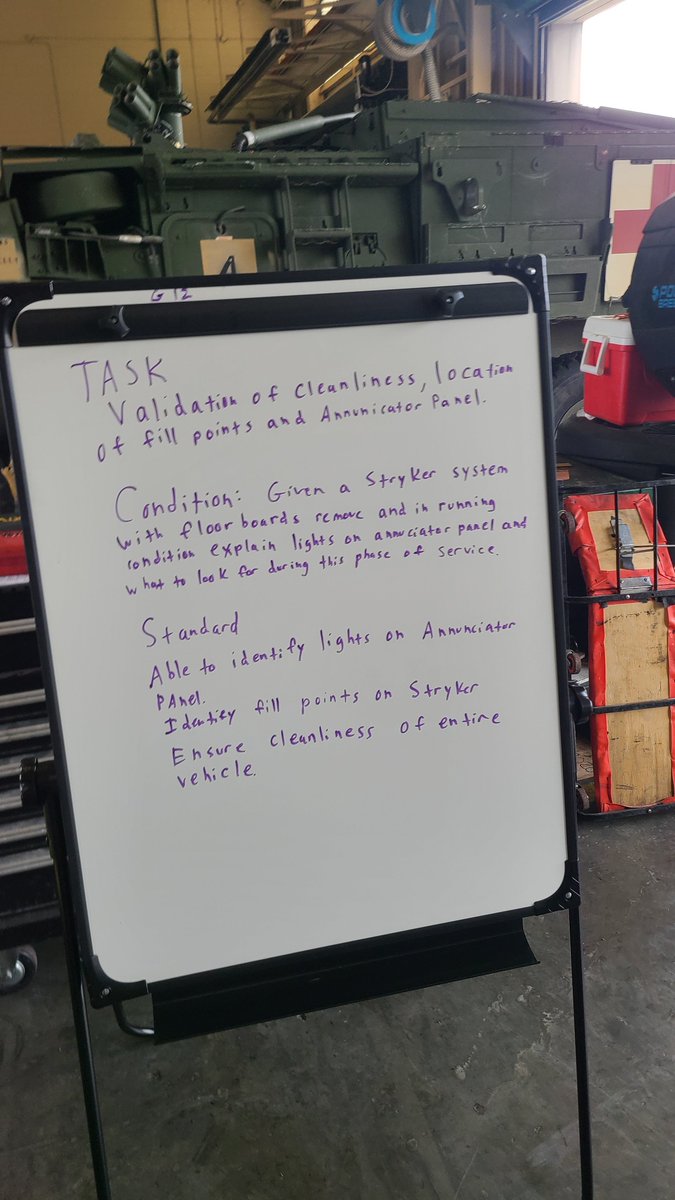 G 12
TASK
Validation of cleanliness, location
of fill points and Annunicator Panel.
Condition: Given a Stryker system
with floor boards remove and in running
condition explain lights on annuciator panel and
what to look for during this phase of service.
Standard
Able to identify lights on Annunciator
PAnel.
Identify fill points on Stryker
Ensure cleanliness of entire
vehicle.